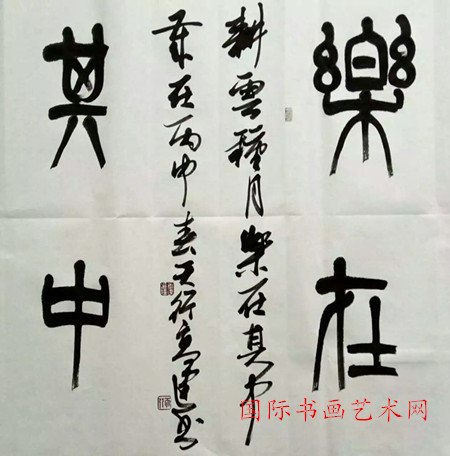 樂在
耕雲種月樂在其中
歲在丙申春天行書
其中
国际书画艺术网